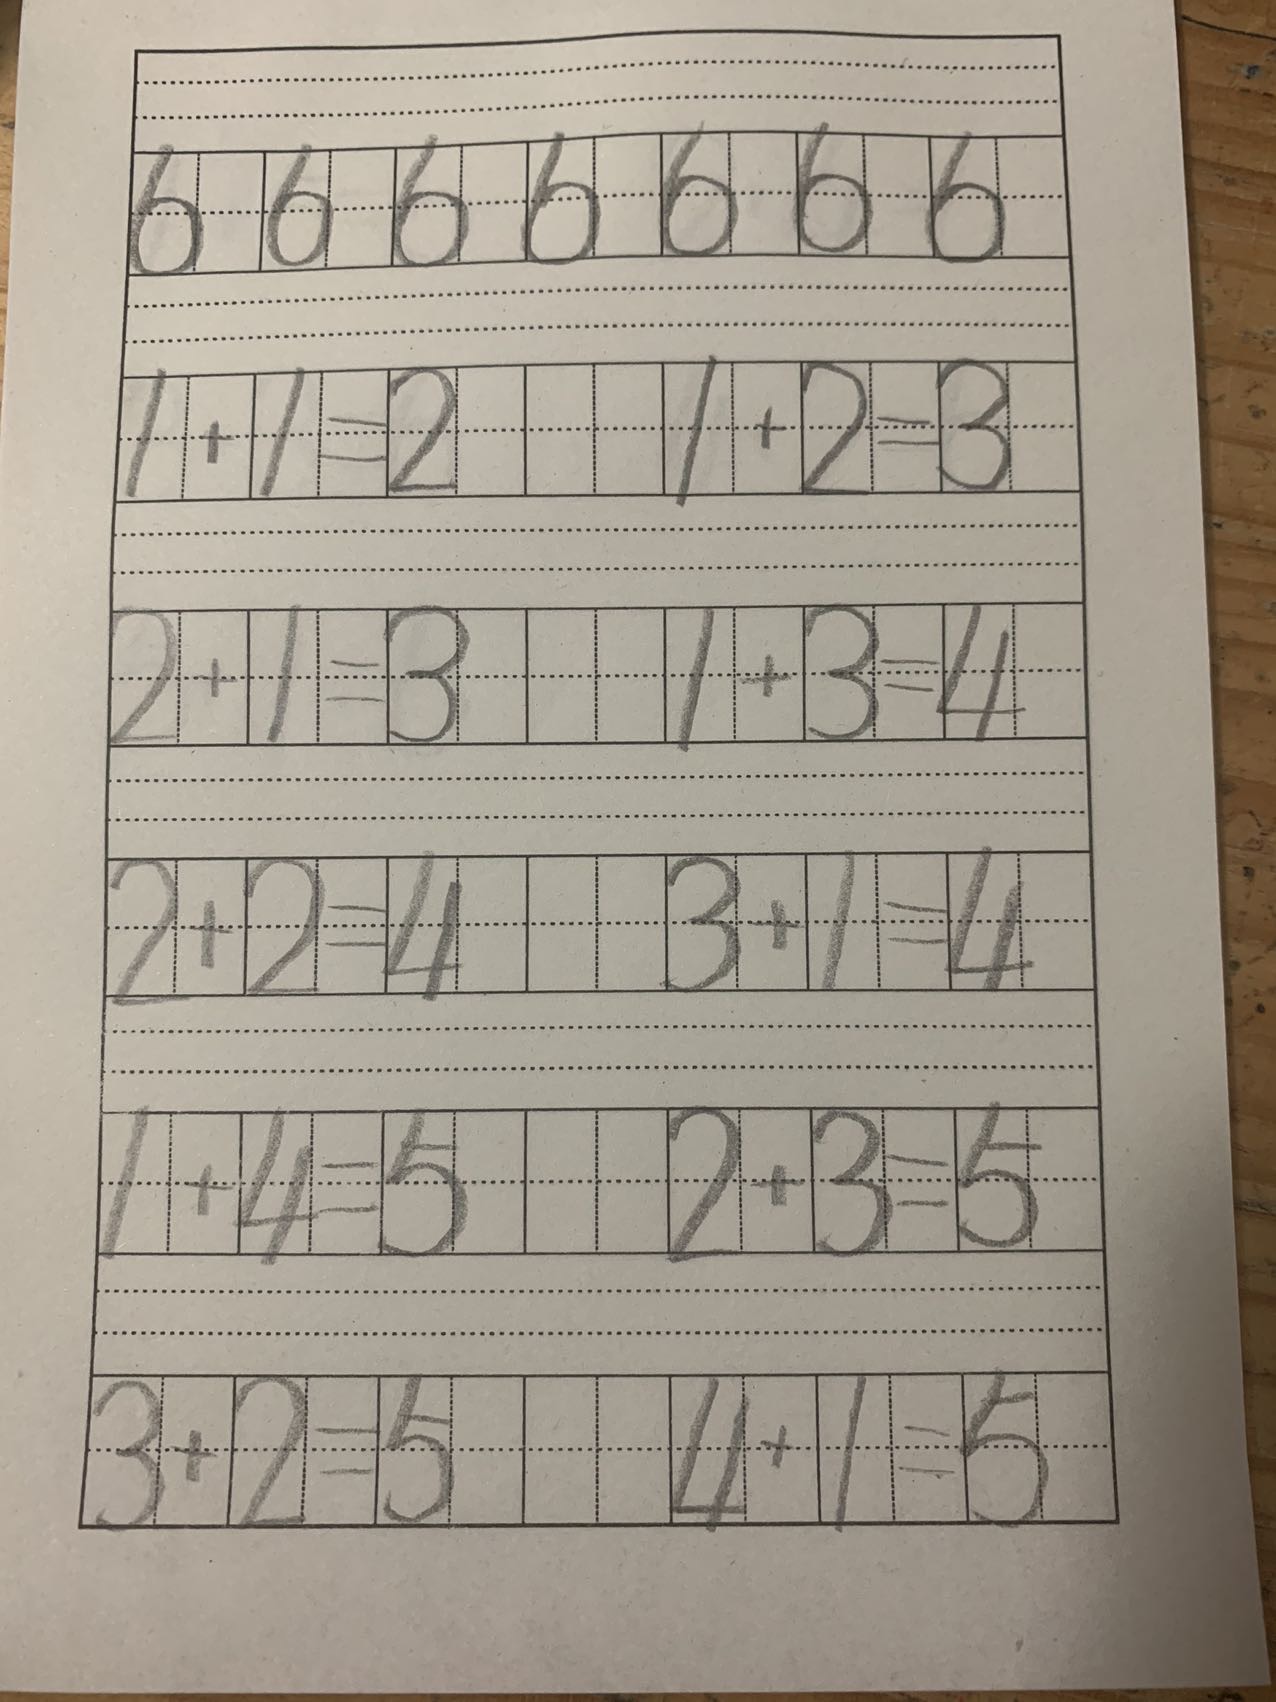 6 6 6 6 6 6 6
1+1=2 1+2=3
2+1=3 1+3=4
2+2=4 3+1=4
1+4=5 2+3=5
3+2=5 4+1=5